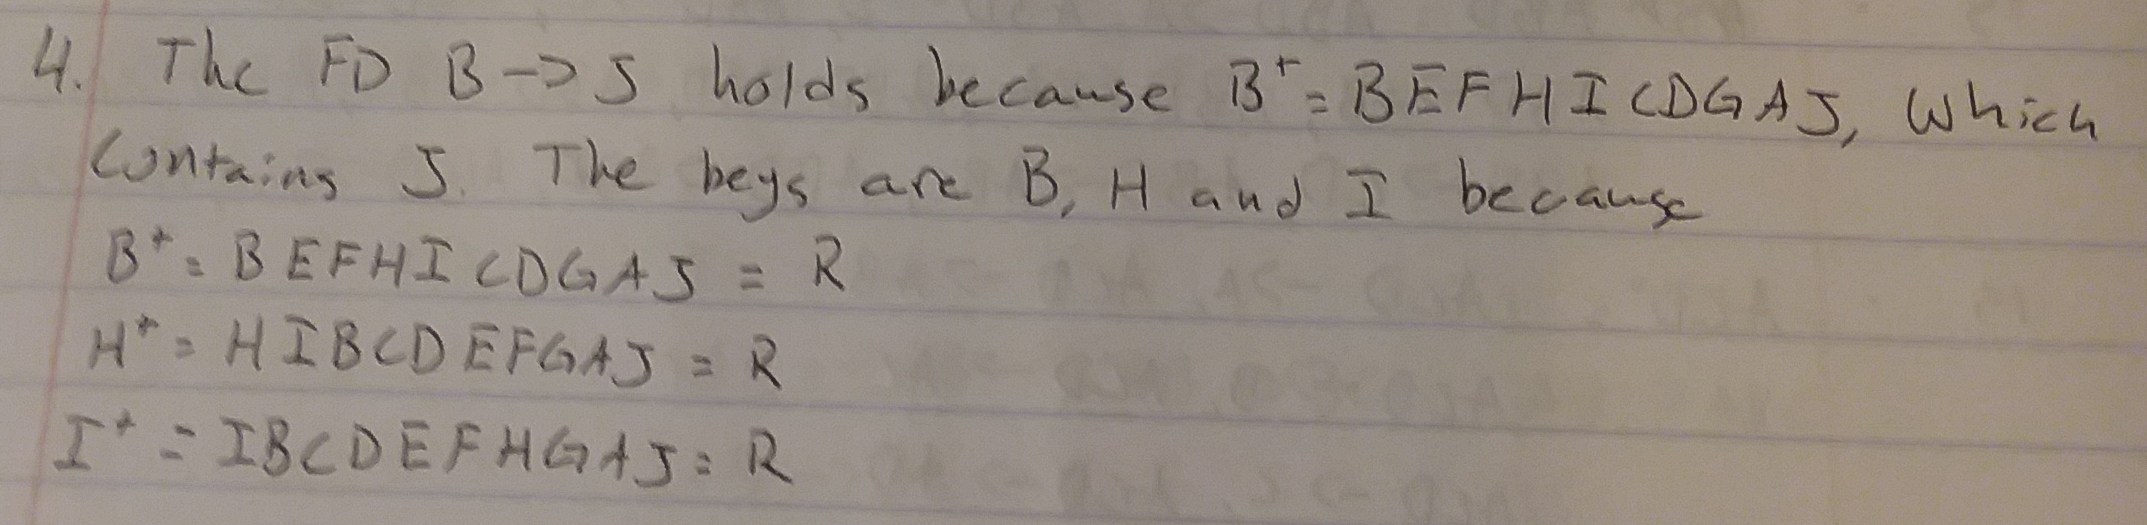 4. The FD B->J holds because B⁺=BEFHICDGAJ, which
contains J. The keys are B, H and I because
B⁺= BEFHICDGAJ = R
H⁺= HIBCDEFGAJ = R
I⁺ = IBCDEFHGAJ = R